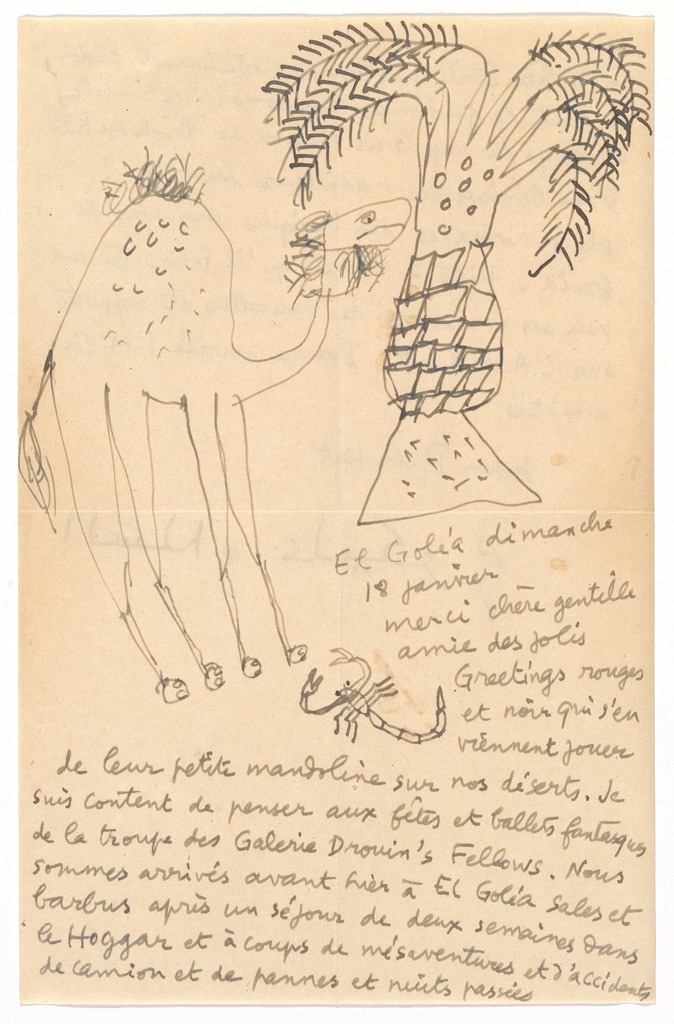 El Goléa dimanche
18 janvier
merci chère gentille
amie des jolis
Greetings rouges
et noir qui s'en
viennent jouer
de leur petite mandoline sur nos déserts. Je
suis content de penser aux fêtes et ballets fantasques
de la troupe des Galerie Drouin's Fellows. Nous
sommes arrivés avant hier à El Goléa sales et
barbus après un séjour de deux semaines dans
le Hoggar et à coups de mésaventures et d'accidents
de camion et de pannes et nuits passées